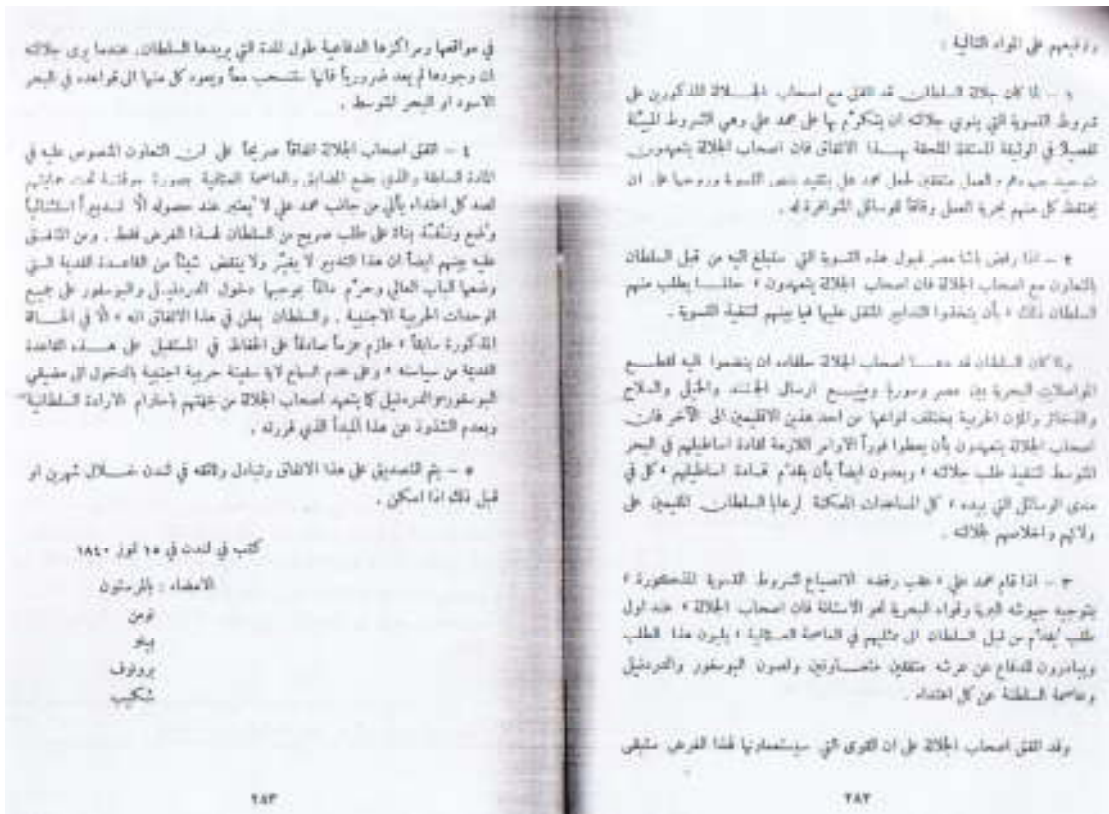 وتوقيعهم على المواد التالية :
١ – لما كان جلالة السلطان قد اتفق مع اصحاب الجلالة المذكورين على
شروط التسوية التي ينوي جلالته ان يتكرّم بها على محمد علي وهي الشروط المبيّنة
تفصيلاً في الوثيقة المستقلة الملحقة بهذا الاتفاق فان اصحاب الجلالة يتعهدون
بتوحيد جهودهم والعمل متفقين لحمل محمد علي بتقيد بنص التسوية وروحها على ان
يحتفظ كل منهم بحرية العمل وفاقاً للوسائل المتوافرة له .
٢ – اذا رفض باشا مصر قبول هذه التسوية التي ستبلغ اليه من قبل السلطان
بالتعاون مع اصحاب الجلالة فان اصحاب الجلالة يتعهدون ، حالما يطلب منهم
السلطان ذلك ، بأن يتخذوا التدابير المتفق عليها فيما بينهم لتنفيذ التسوية .
ولما كان السلطان قد دعا اصحاب الجلالة حلفاءه ان ينضموا اليه لقطع
المواصلات البحرية بين مصر وسوريا ومنع ارسال الجند والخيل والسلاح
والذخائر والمؤن الحربية بمختلف انواعها من احد هذين الاقليمين الى الآخر فان
اصحاب الجلالة يتعهدون بأن يعطوا فوراً الاوامر اللازمة لقادة اساطيلهم في البحر
المتوسط لتنفيذ طلب جلالته ، ويعدون ايضاً بأن يقدّم قادة اساطيلهم ، كل في
مدى الوسائل التي بيده ، كل المساعدات الممكنة لرعايا السلطان المقيمين على
ولائهم واخلاصهم لجلالته .
٣ – اذا قام محمد علي ، عقب رفضه الانصياع لشروط التسوية المذكورة ،
بتوجيه جيوشه البرية وقواه البحرية نحو الاستانة فان اصحاب الجلالة ، عند اول
طلب يُقدّم من قبل السلطان الى ممثليهم في العاصمة العثمانية ، يلبون هذا الطلب
ويبادرون للدفاع عن عرشه متفقين متعاونين ولصون البوسفور والدردنيل
وعاصمة السلطنة عن كل اعتداء .
وقد اتفق اصحاب الجلالة على ان القوى التي سيستعملونها لهذا الغرض ستبقى
٢٨٢
في مواقعها ومراكزها الدفاعية طول المدة التي يريدها السلطان. عندما يرى جلالته
ان وجودها لم يعد ضرورياً فانها ستنسحب معاً ويعود كل منها الى قواعده في البحر
الاسود او البحر المتوسط .
٤ – اتفق اصحاب الجلالة اتفاقاً صريحاً على ان التعاون المنصوص عليه في
المادة السابقة والذي يضع المضايق والعاصمة العثمانية بصورة موقتة تحت حمايتهم
لصد كل اعتداء يأتي من جانب محمد علي لا يُعتبر عند حصوله الّا تدبيراً استثنائياً
وُضع ونُفّذ بناءً على طلب صريح من السلطان لهذا الغرض فقط . ومن المتفق
عليه بينهم ايضاً ان هذا التدبير لا يغيّر ولا ينقض شيئاً من القاعدة القديمة التي
وضعها الباب العالي وحرّم دائماً بموجبها دخول الدردنيل والبوسفور على جميع
الوحدات الحربية الاجنبية . والسلطان يعلن في هذا الاتفاق انه ، الّا في الحالة
المذكورة سابقاً ، عازم عزماً صادقاً على الحفاظ في المستقبل على هذه القاعدة
القديمة من سياسته ، وعلى عدم السماح لاية سفينة حربية اجنبية بالدخول الى مضيقي
البوسفور والدردنيل كما يتعهد اصحاب الجلالة من جهتهم باحترام الارادة السلطانية
وبعدم الشذوذ عن هذا المبدأ الذي قررته .
٥ – يتم التصديق على هذا الاتفاق وتبادل وثائقه في لندن خلال شهرين او
قبل ذلك اذا امكن .
كتب في لندن في ١٥ تموز ١٨٤٠
الامضاء : بالمرستون
نومن
بيلو
برونوف
شكيب
٢٨٣